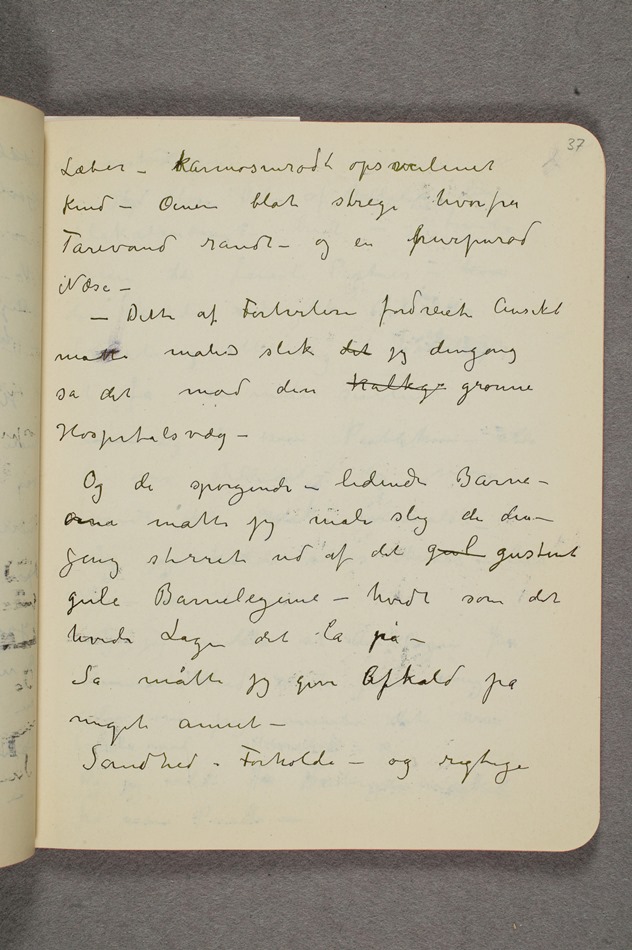 37
Læber – karmosinrødt opsvulmet
Kind – Øinene blot strege hvorfra
Tarevand randt – og en purpurød
Næse –
– Dette af Fortvilelse fordreiete Ansikt
matte males slik det jeg dengang
sa det mod den kalkgr grønne
Hospitalsvæg –
Og de spørgende – lidende Barne-
øine matte jeg male slig de den-
gang stirret ud af det gul gustent
gule Barnelegeme – hvidt som det
hvide Lagen det la på –
Sa måtte jeg give Afkald pa
meget annet –
Sandhed i Forholde – og rigtige